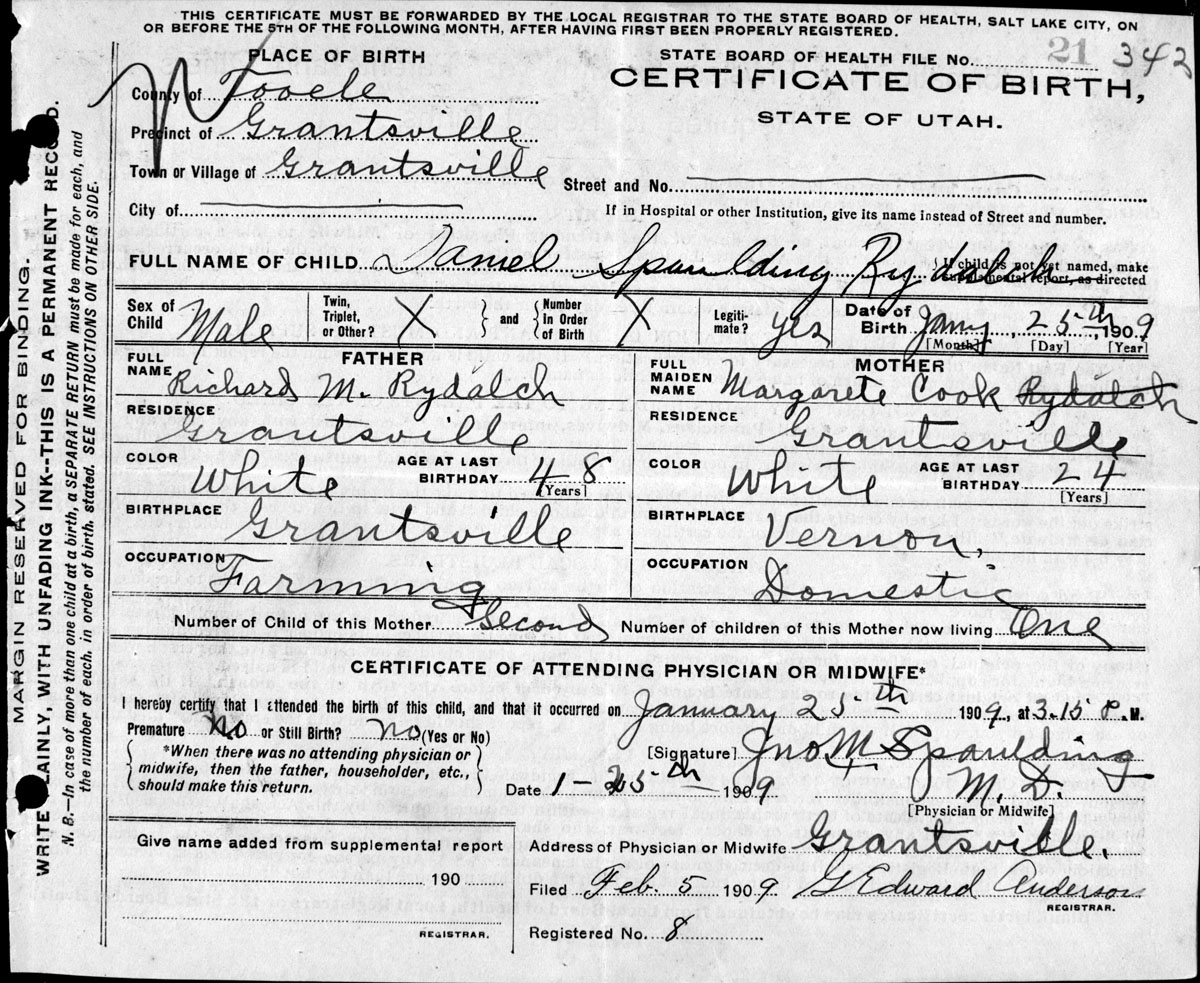 THIS CERTIFICATE MUST BE FORWARDED BY THE LOCAL REGISTRAR TO THE STATE BOARD OF HEALTH, SALT LAKE CITY, ON
OR BEFORE THE 5TH OF THE FOLLOWING MONTH, AFTER HAVING FIRST BEEN PROPERLY REGISTERED.
PLACE OF BIRTH
STATE BOARD OF HEALTH FILE No. 21 343
County of Tooele
CERTIFICATE OF BIRTH,
Precinct of Grantsville
STATE OF UTAH.
Town or Village of Grantsville
Street and No.
City of
If in Hospital or other Institution, give its name instead of Street and number.
FULL NAME OF CHILD Daniel Spaulding Rydalch { If child is not yet named, make supplemental report, as directed
Sex of Child Male Twin, Triplet, or Other? X } and { Number In Order of Birth X Legiti-mate? yes Date of Birth Jany 25th 1909
[Month] [Day] [Year]
FATHER
MOTHER
FULL NAME Richard M. Rydalch
FULL MAIDEN NAME Margarete Cook Rydalch
RESIDENCE Grantsville
RESIDENCE Grantsville
COLOR White AGE AT LAST BIRTHDAY 48 [Years]
COLOR White AGE AT LAST BIRTHDAY 24 [Years]
BIRTHPLACE Grantsville
BIRTHPLACE Vernon,
OCCUPATION Farmming
OCCUPATION Domestic
Number of Child of this Mother Second Number of children of this Mother now living One
CERTIFICATE OF ATTENDING PHYSICIAN OR MIDWIFE*
I hereby certify that I attended the birth of this child, and that it occurred on January 25th 1909, at 3.15 P. M.
Premature No or Still Birth? No (Yes or No)
*When there was no attending physician or
midwife, then the father, householder, etc.,
should make this return.
[Signature] Jno. M. Spaulding
Date 1-25th 1909 M. D.
[Physician or Midwife]
Give name added from supplemental report
190
REGISTRAR.
Address of Physician or Midwife Grantsville.
Filed Feb. 5 1909. G Edward Anderson
REGISTRAR.
Registered No. 8
MARGIN RESERVED FOR BINDING.
WRITE PLAINLY, WITH UNFADING INK--THIS IS A PERMANENT RECORD.
N. B.--In case of more than one child at a birth, a SEPARATE RETURN must be made for each, and
the number of each, in order of birth, stated. SEE INSTRUCTIONS ON OTHER SIDE.